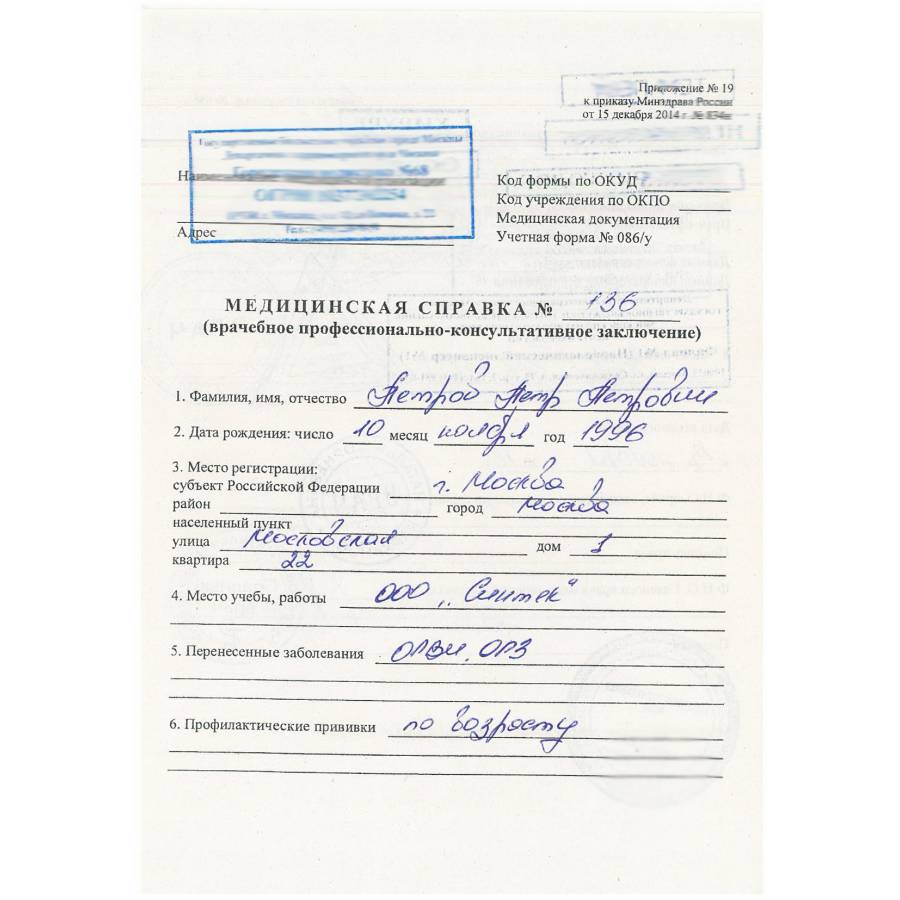 Приложение № 19
к приказу Минздрава России
от 15 декабря 2014 г.
№68
Код формы по ОКУД
Код учреждения по ОКПО
Медицинская документация
Адрес
Учетная форма № 086/у
МЕДИЦИНСКАЯ СПРАВКА № 136
(врачебное профессионально-консультативное заключение)
1. Фамилия, имя, отчество Петров Петр Петрович
2. Дата рождения: число 10 месяц ноября год 1996
3. Место регистрации:
субъект Российской Федерации г. Москва
район город Москва
населенный пункт
улица Московская дом 1
квартира 22
4. Место учебы, работы ООО „Синтек"
5. Перенесенные заболевания ОРВИ, ОРЗ
6. Профилактические прививки по возросту